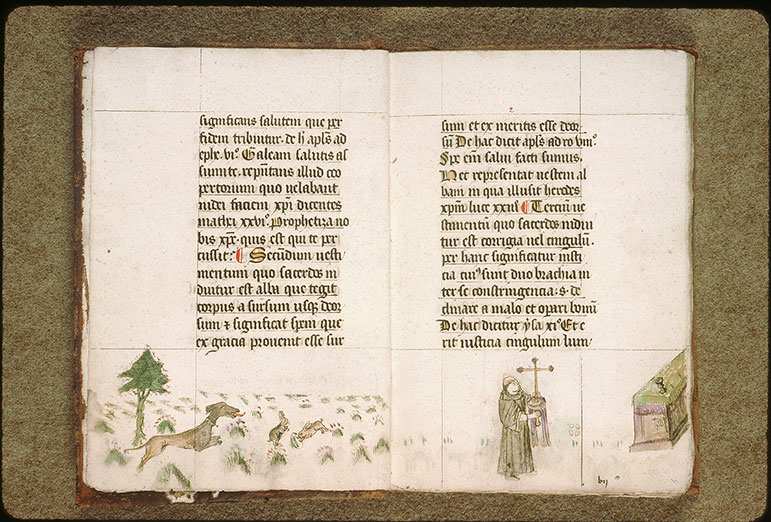 significans salutem que per
fidem tribuitur. de h apls ad
ephe. vi°. Galeam salutis as
sumite. repntans illud coo
pertorium quo uelabant
iudei faciem xpi dicentes
mathi xxvi°. Prophetiza no
bis xpe. quis est qui te per
cussit: ¶ Secundum uesti
mentum quo sacerdos in
duitur est alba que tegit
corpus a sursum usque deor
sum & significat spem que
ex gracia prouenit esse sur
2
sum et ex meritis esse deor
sū De hac dicit apls ad ro viii°.
Spe eīm salui facti sumus.
Nec representat uestem al
bam in qua illusit herodes
xpm luce xxiii ¶ Tercium ue
stimentū quo sacerdos indui
tur est corrigia uel cingulū.
per hanc significatur iusti
cia cuius sunt duo brachia in
ter se constringencia .s. de
clinare a malo et operari bonū
De hac dicitur ysa xi° Et e
rit iusticia cingulum lum
bij